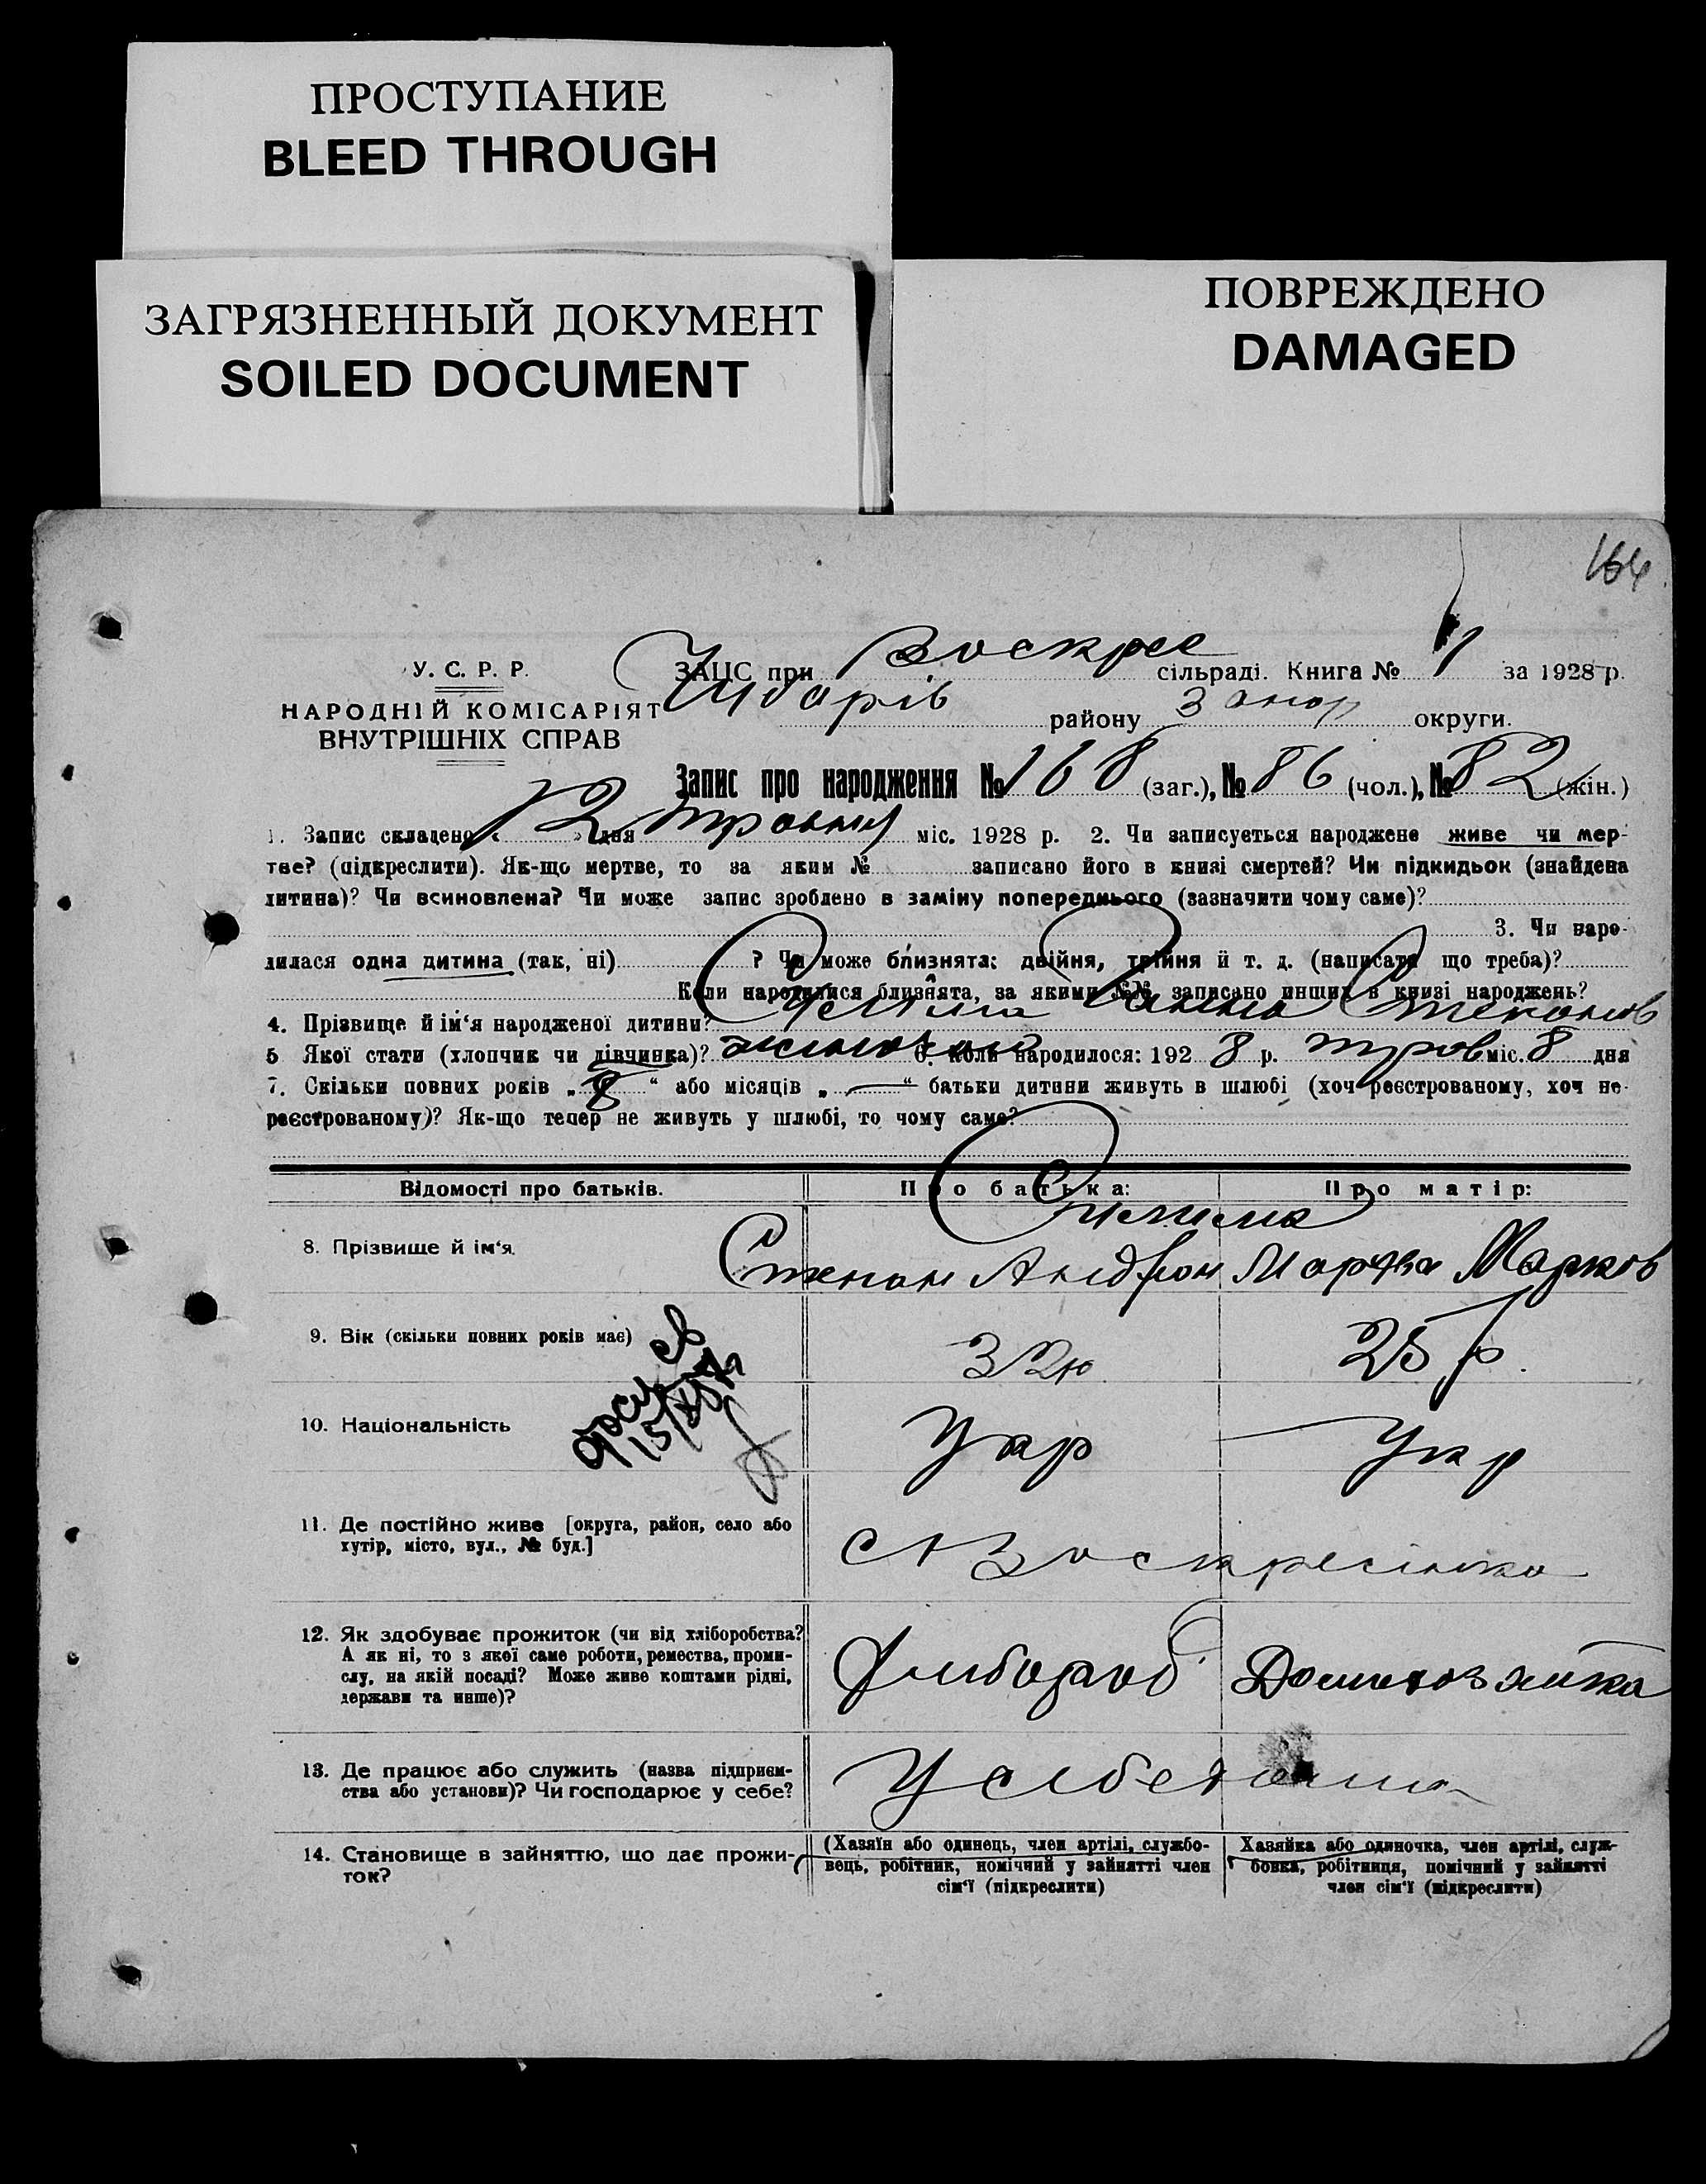 ПРОСТУПАНИЕ
BLEED THROUGH
ЗАГРЯЗНЕННЫЙ ДОКУМЕНТ
SOILED DOCUMENT
ПОВРЕЖДЕНО
DAMAGED
У. С. Р. Р.
НАРОДНІЙ КОМІСАРІЯТ
ВНУТРІШНІХ СПРАВ
ЗАЦС при Воскрес сільраді. Книга № 1 за 1928 р.
району Запор округи.
Запис про народження № 168 (заг.), № 86 (чол.), № 82 (жін.)
1. Запис складено „12" дня травня міс. 1928 р. 2. Чи записується народжене живе чи мер-
тве? (підкреслити). Як-що мертве, то за яким № записано його в книзі смертей? Чи підкидьок (знайдена
дитина)? Чи всиновлена? Чи може запис зроблено в заміну попереднього (зазначити чому саме)?
3. Чи наро-
дилася одна дитина (так, ні) ? Чи може близнята: двійня, трійня й т. д. (написати що треба)?
Коли народилися близнята, за якими №№ записано инших в книзі народжень?
4. Прізвище й ім'я народженої дитини? Ганна Степанов
5 Якої стати (хлопчик чи дівчинка)? 6. Коли народилося: 1928 р. трав міс. 8 дня
7. Скільки повних років „8" або місяців „—" батьки дитини живуть в шлюбі (хоч реєстрованому, хоч не-
реєстрованому)? Як-що тепер не живуть у шлюбі, то чому саме?
Відомості про батьків.
Про батька:
Про матір:
8. Прізвище й ім'я.
Степан Андрон
Марфа Марков
9. Вік (скільки повних років має)
32
25 р.
10. Національність
Укр
Укр
11. Де постійно живе [округа, район, село або
хутір, місто, вул., № буд.]
с Воскресінка
12. Як здобуває прожиток (чи від хліборобства?
А як ні, то з якої саме роботи, ремества, проми-
слу, на якій посаді? Може живе коштами рідні,
держави та инше)?
Хлібороб
Домохозяйка
13. Де працює або служить (назва підприєм-
ства або установи)? Чи господарює у себе?
14. Становище в зайняттю, що дає прожи-
ток?
(Хазяїн або одинець, член артілі, службо-
вець, робітник, помічний у зайнятті член
сім'ї (підкреслити)
Хазяйка або одиночка, член артілі, служ-
бовка, робітниця, помічний у зайнятті
член сім'ї (підкреслити)